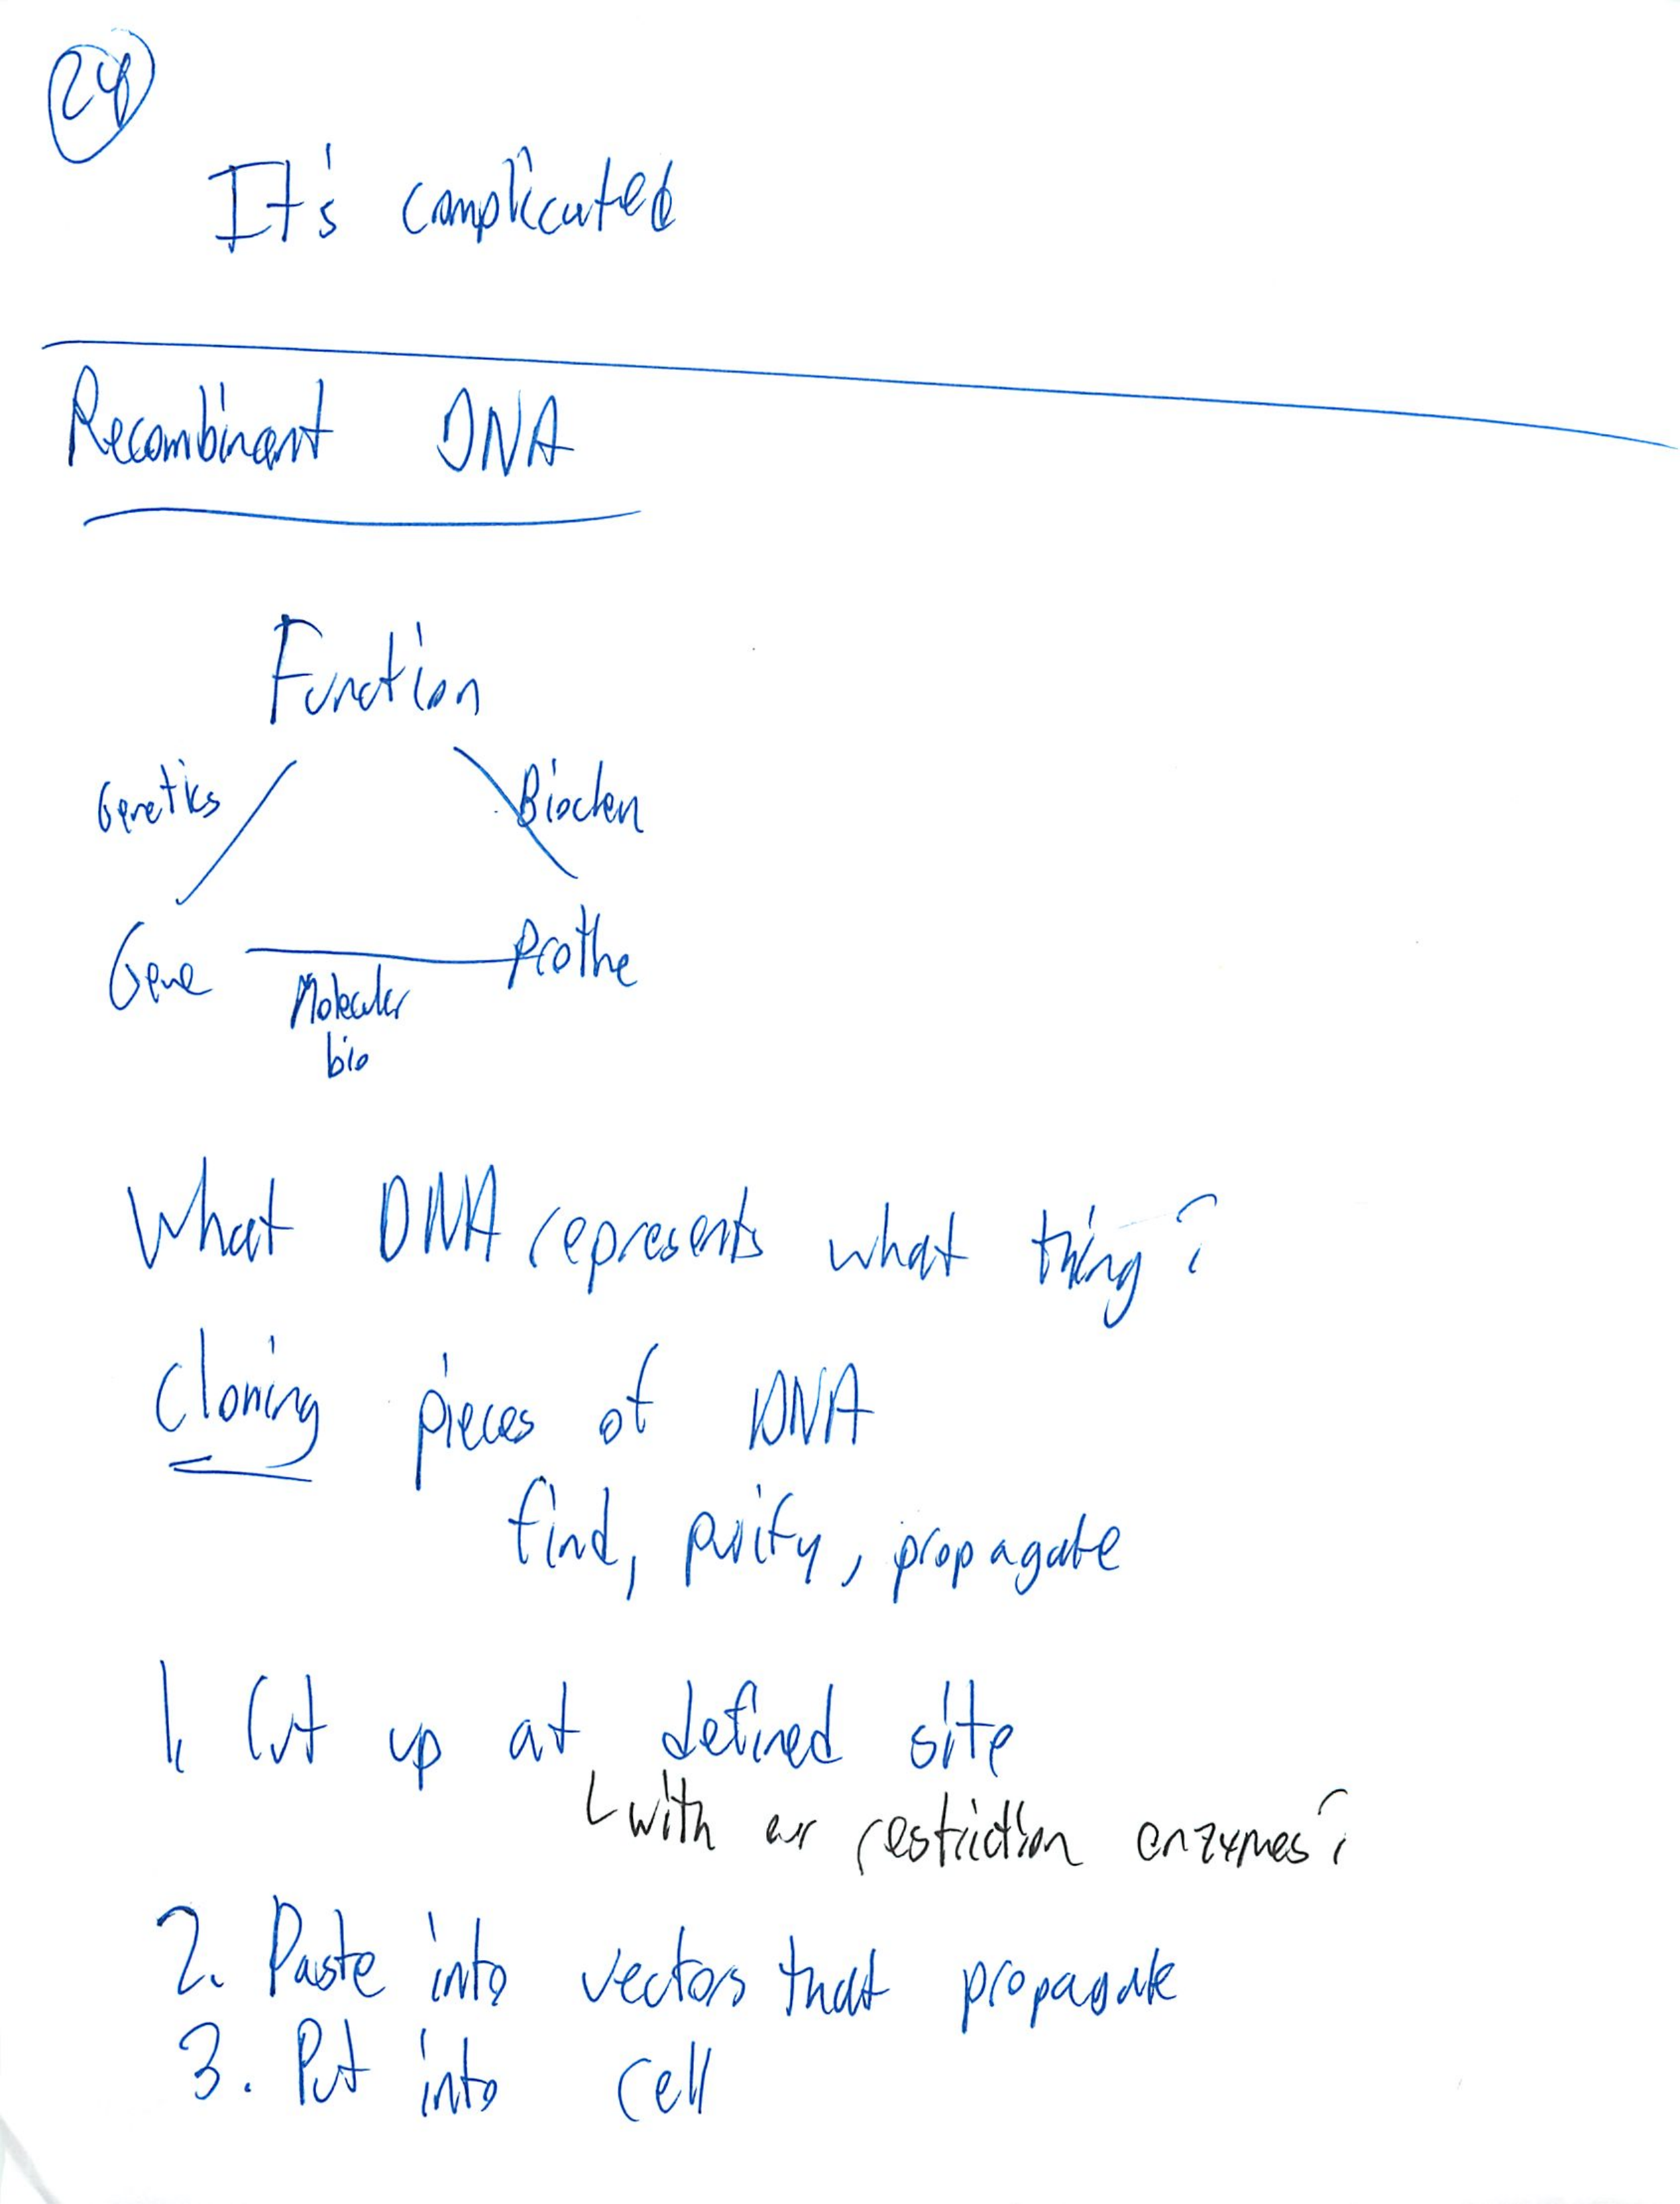 24
It's complicated
Recombinant DNA
Function
Genetics
Biochem
Gene
Protine
Molecular
bio
What DNA represents what thing?
Cloning pieces of DNA
find, purify, propagate
1. Cut up at defined site
with restriction enzymes?
2. Paste into vectors that propagate
3. Put into cell